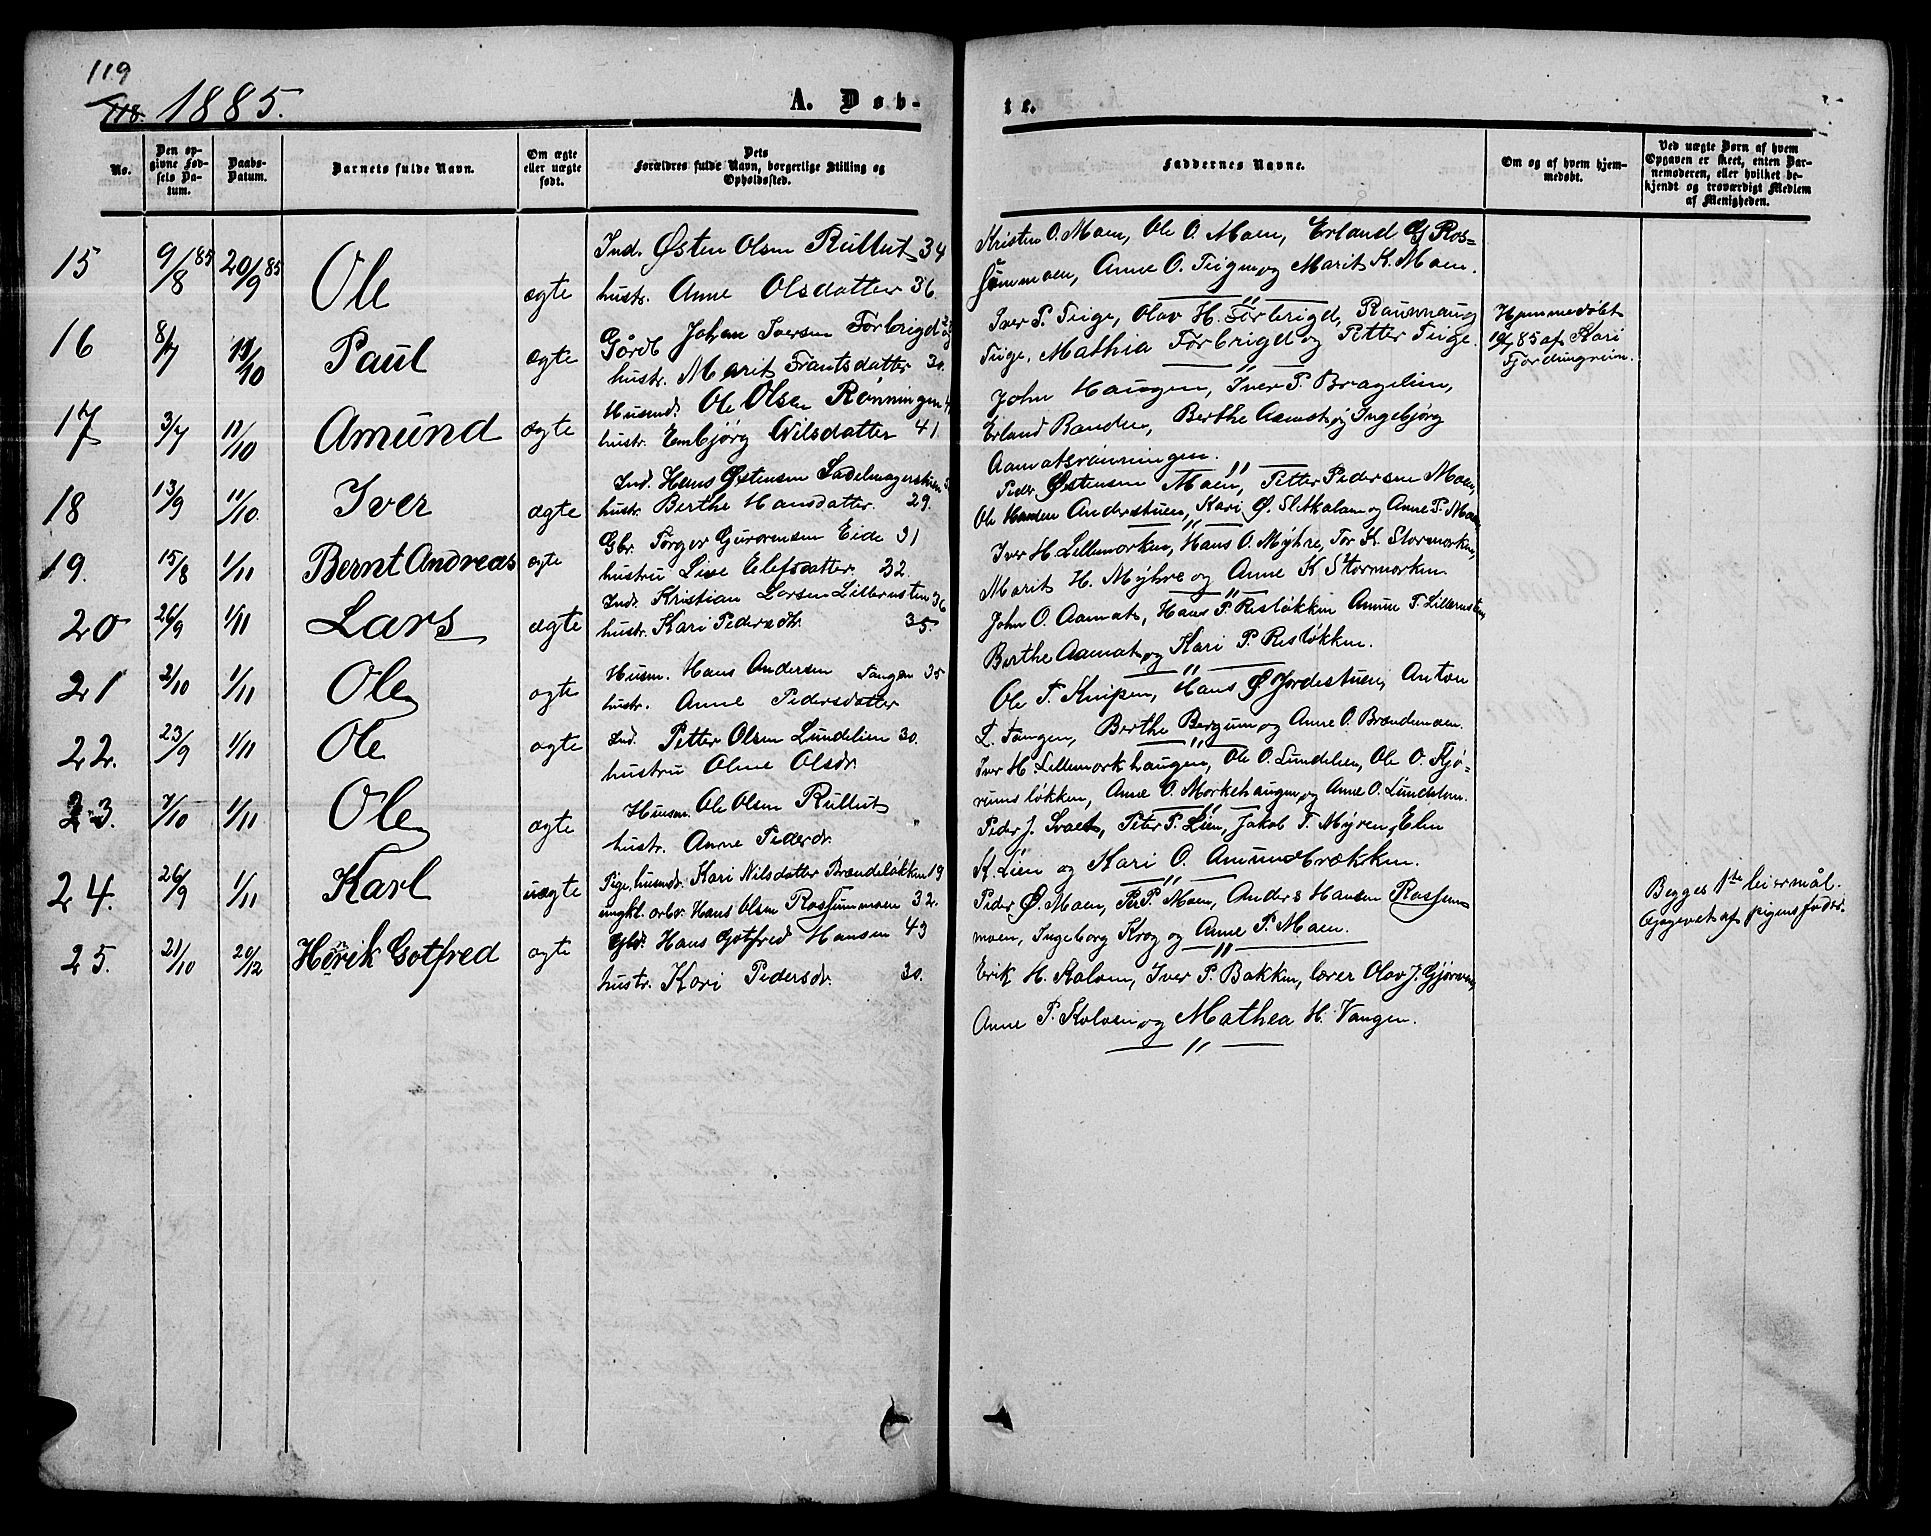 119
118. 1885.
A. Døb-
te.
No.
Den op-
givne Fød-
sels Da-
tum.
Daabs-
Datum.
Barnets fulde Navn.
Om ægte
eller uægte
født.
Dets
Forældres fulde Navn, borgerlige Stilling og
Opholdssted.
Faddernes Navne.
Om og af hvem hjem-
medøbt.
Ved uægte Børn af hvem
Opgaven er skeet, enten Bar-
nemoderen, eller hvilket be-
kjendt og troværdigt Medlem
af Menigheden.
15 9/8 85 20/9 85 Ole ægte
Ind. Østen Olsen Rullut 34
hustr. Anne Olsdatter 36.
Kristen O. Moen, Ole O. Moen, Erland Ros-
summoen, Anne O. Teigen og Marit K. Moen.
16 8/7 11/10 Paul ægte
Gårdb Johan Iversen Førbrigd
hustr. Marit Frantsdatter 30.
Iver P. Teige, Olav H. Førbrigd, Raunnaug
Teige, Mathia Førbrigd og Petter Teige.
Hjemmedøbt
85 af Kari
Fjerdingreim.
17 3/7 11/10 Amund ægte
Husmd. Ole Olsen Rønningen
hustr. Embjørg Nilsdatter 41.
John Haugen, Iver P. Bragelien,
Erland Randen, Berthe Aamot og Ingebjørg
Aamotsrønningen.
18 13/9 11/10. Iver ægte
Ind. Hans Østensen Sadelmagerstuen
hustr. Berthe Hansdatter. 29.
Peder Østensen Moen, Petter Pedersen Moen,
Ole Hansen Andrestuen, Kari Ø. Sletkolen og Anne P. Moen
19. 15/8 1/11 Bernt Andreas ægte
Gbr. Torger Gurorensen Eide 31
hustru Lise Elefsdatter 32.
Iver H. Lillemorken, Hans O. Myhre, Tor K. Stormorken,
Marit H. Myhre og Anne K Stormorken
20 26/9 1/11 Lars ægte
Ind. Kristian Larsen Lillernsten 36
hustr. Kari Pedersdtr. 35.
John O. Aamot, Hans P. Risløkken Amun T. Lillernsten,
Berthe Aamot og Kari P. Risløkken.
21 2/10 1/11 Ole ægte
Husm. Hans Andersen Tangen 35
hustr. Anne Pedersdatter
Ole T. Knipen, Hans Ø Jordestuen, Anton
L. Tangen, Berthe Bergum og Anne O. Brændemoen.
22. 23/9 1/11 Ole ægte
Ind. Petter Olsen Lundelien 30.
hustru Olme Olsdr.
Iver H. Lillemorkhaugen, Ole O. Lundelien, Ole O. Kjø-
rumsløkken, Anne O. Morkehaugen, og Anne O. Lundelien.
23. 7/10 1/11 Ole ægte
Husm. Ole Olsen Rullut
hustr. Anne Pedersdr.
Peder J. Svaet, Peter P. Lien, Jakob T. Myren, Elen
K. Lien og Kari O. Amundbrækken.
24. 26/9 1/11 Karl uægte
Pige, husmdr. Kari Nilsdatter Brændeløkken 19
ungkl. arbr. Hans Olsen Rossummoen 32.
Peder Ø. Moen, P. Moen, Anders Hansen Rossum
moen, Ingeborg Krog og Anne P. Moen.
Begges 1ste leiermål.
Opgivet af pigens fader.
25. 21/10 20/12 Henrik Gotfred ægte
Gbr. Hans Gotfred Hansen 43
hustr. Kari Pedersdr. 30.
Erik H. Kolven, Iver P. Bakken, lærer Olav J. Gjørven,
Anne P. Kolven og Mathea H. Vangen.